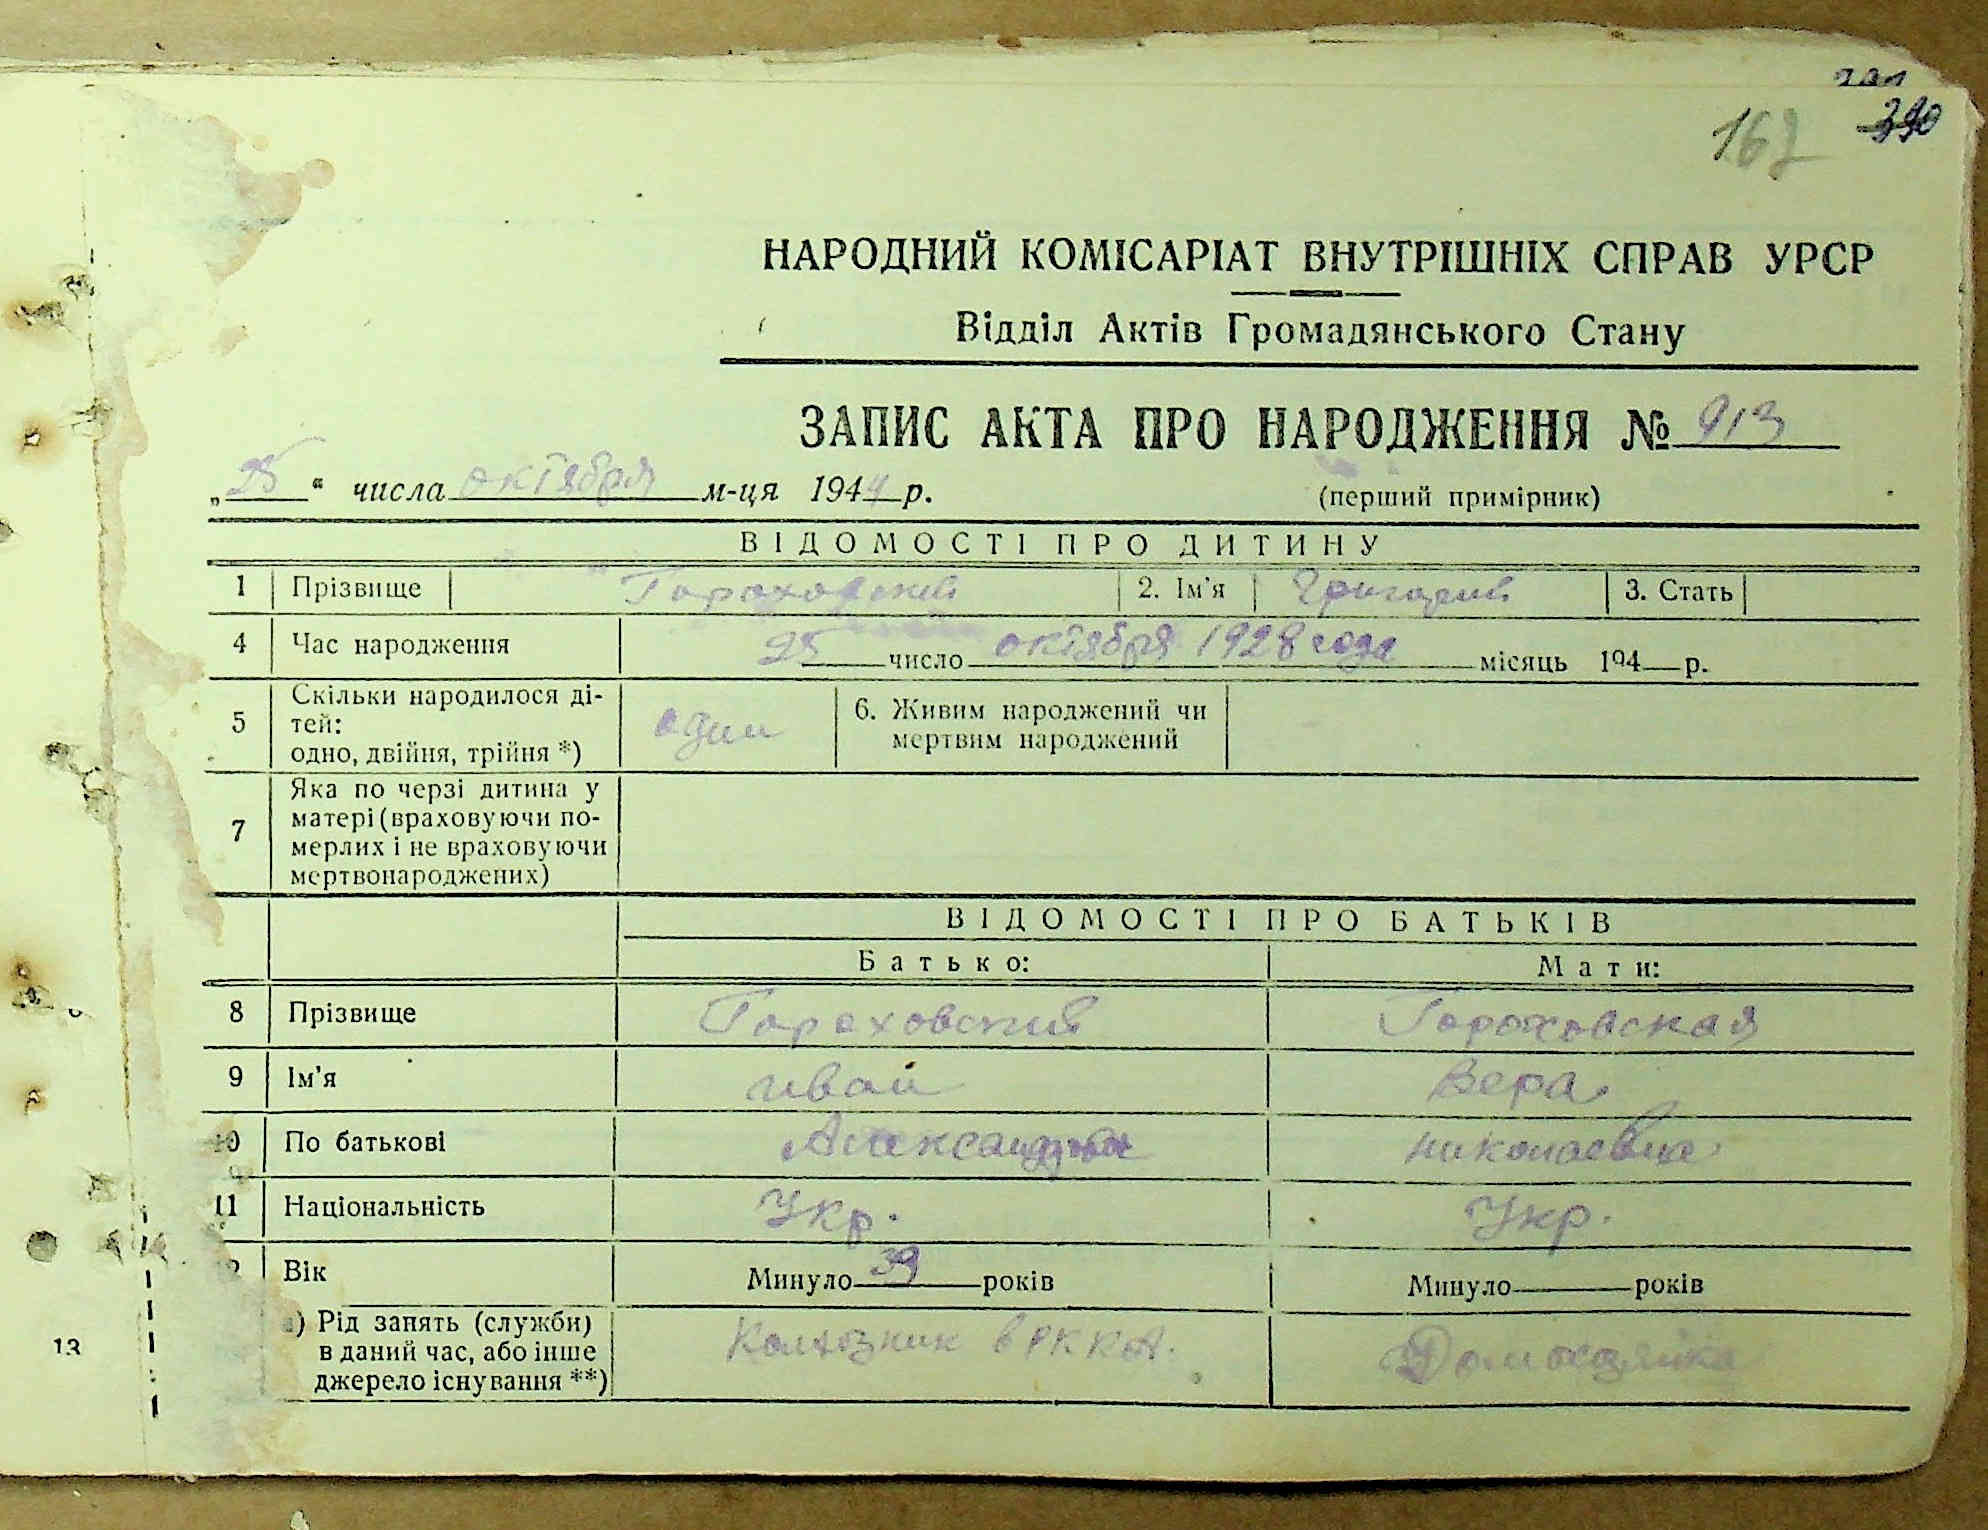 390
167
НАРОДНИЙ КОМІСАРІАТ ВНУТРІШНІХ СПРАВ УРСР
Відділ Актів Громадянського Стану
ЗАПИС АКТА ПРО НАРОДЖЕННЯ № 913
„25“ числа октября м-ця 1944 р.
(перший примірник)
ВІДОМОСТІ ПРО ДИТИНУ
1 Прізвище Гороховский 2. Ім'я Григорий 3. Стать
4 Час народження 25 число октября 1928 года місяць 194 р.
5 Скільки народилося ді-
тей:
одно, двійня, трійня *) один 6. Живим народжений чи
мертвим народжений
7 Яка по черзі дитина у
матері (враховуючи по-
мерлих і не враховуючи
мертвонароджених)
ВІДОМОСТІ ПРО БАТЬКІВ
Батько: Мати:
8 Прізвище Гороховский Гороховская
9 Ім'я иван Вера
10 По батькові николаевна
11 Національність Укр. Укр.
Вік Минуло 39 років Минуло років
) Рід занять (служби)
в даний час, або інше
джерело існування **) Колхозник в РККА. Домохозяйка
13